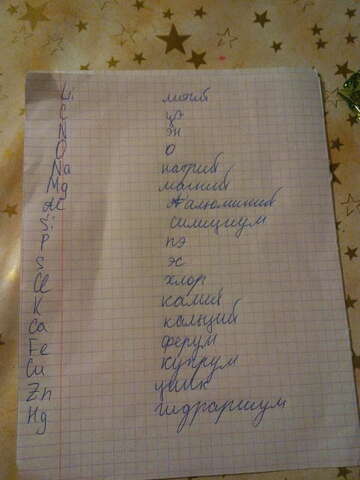 Li литий
C цэ
N эн
O о
Na натрий
Mg магний
Al алюминий
Si силициум
P пэ
S эс
Cl хлор
K калий
Ca кальций
Fe ферум
Cu купрум
Zn цинк
Hg гидраргиум